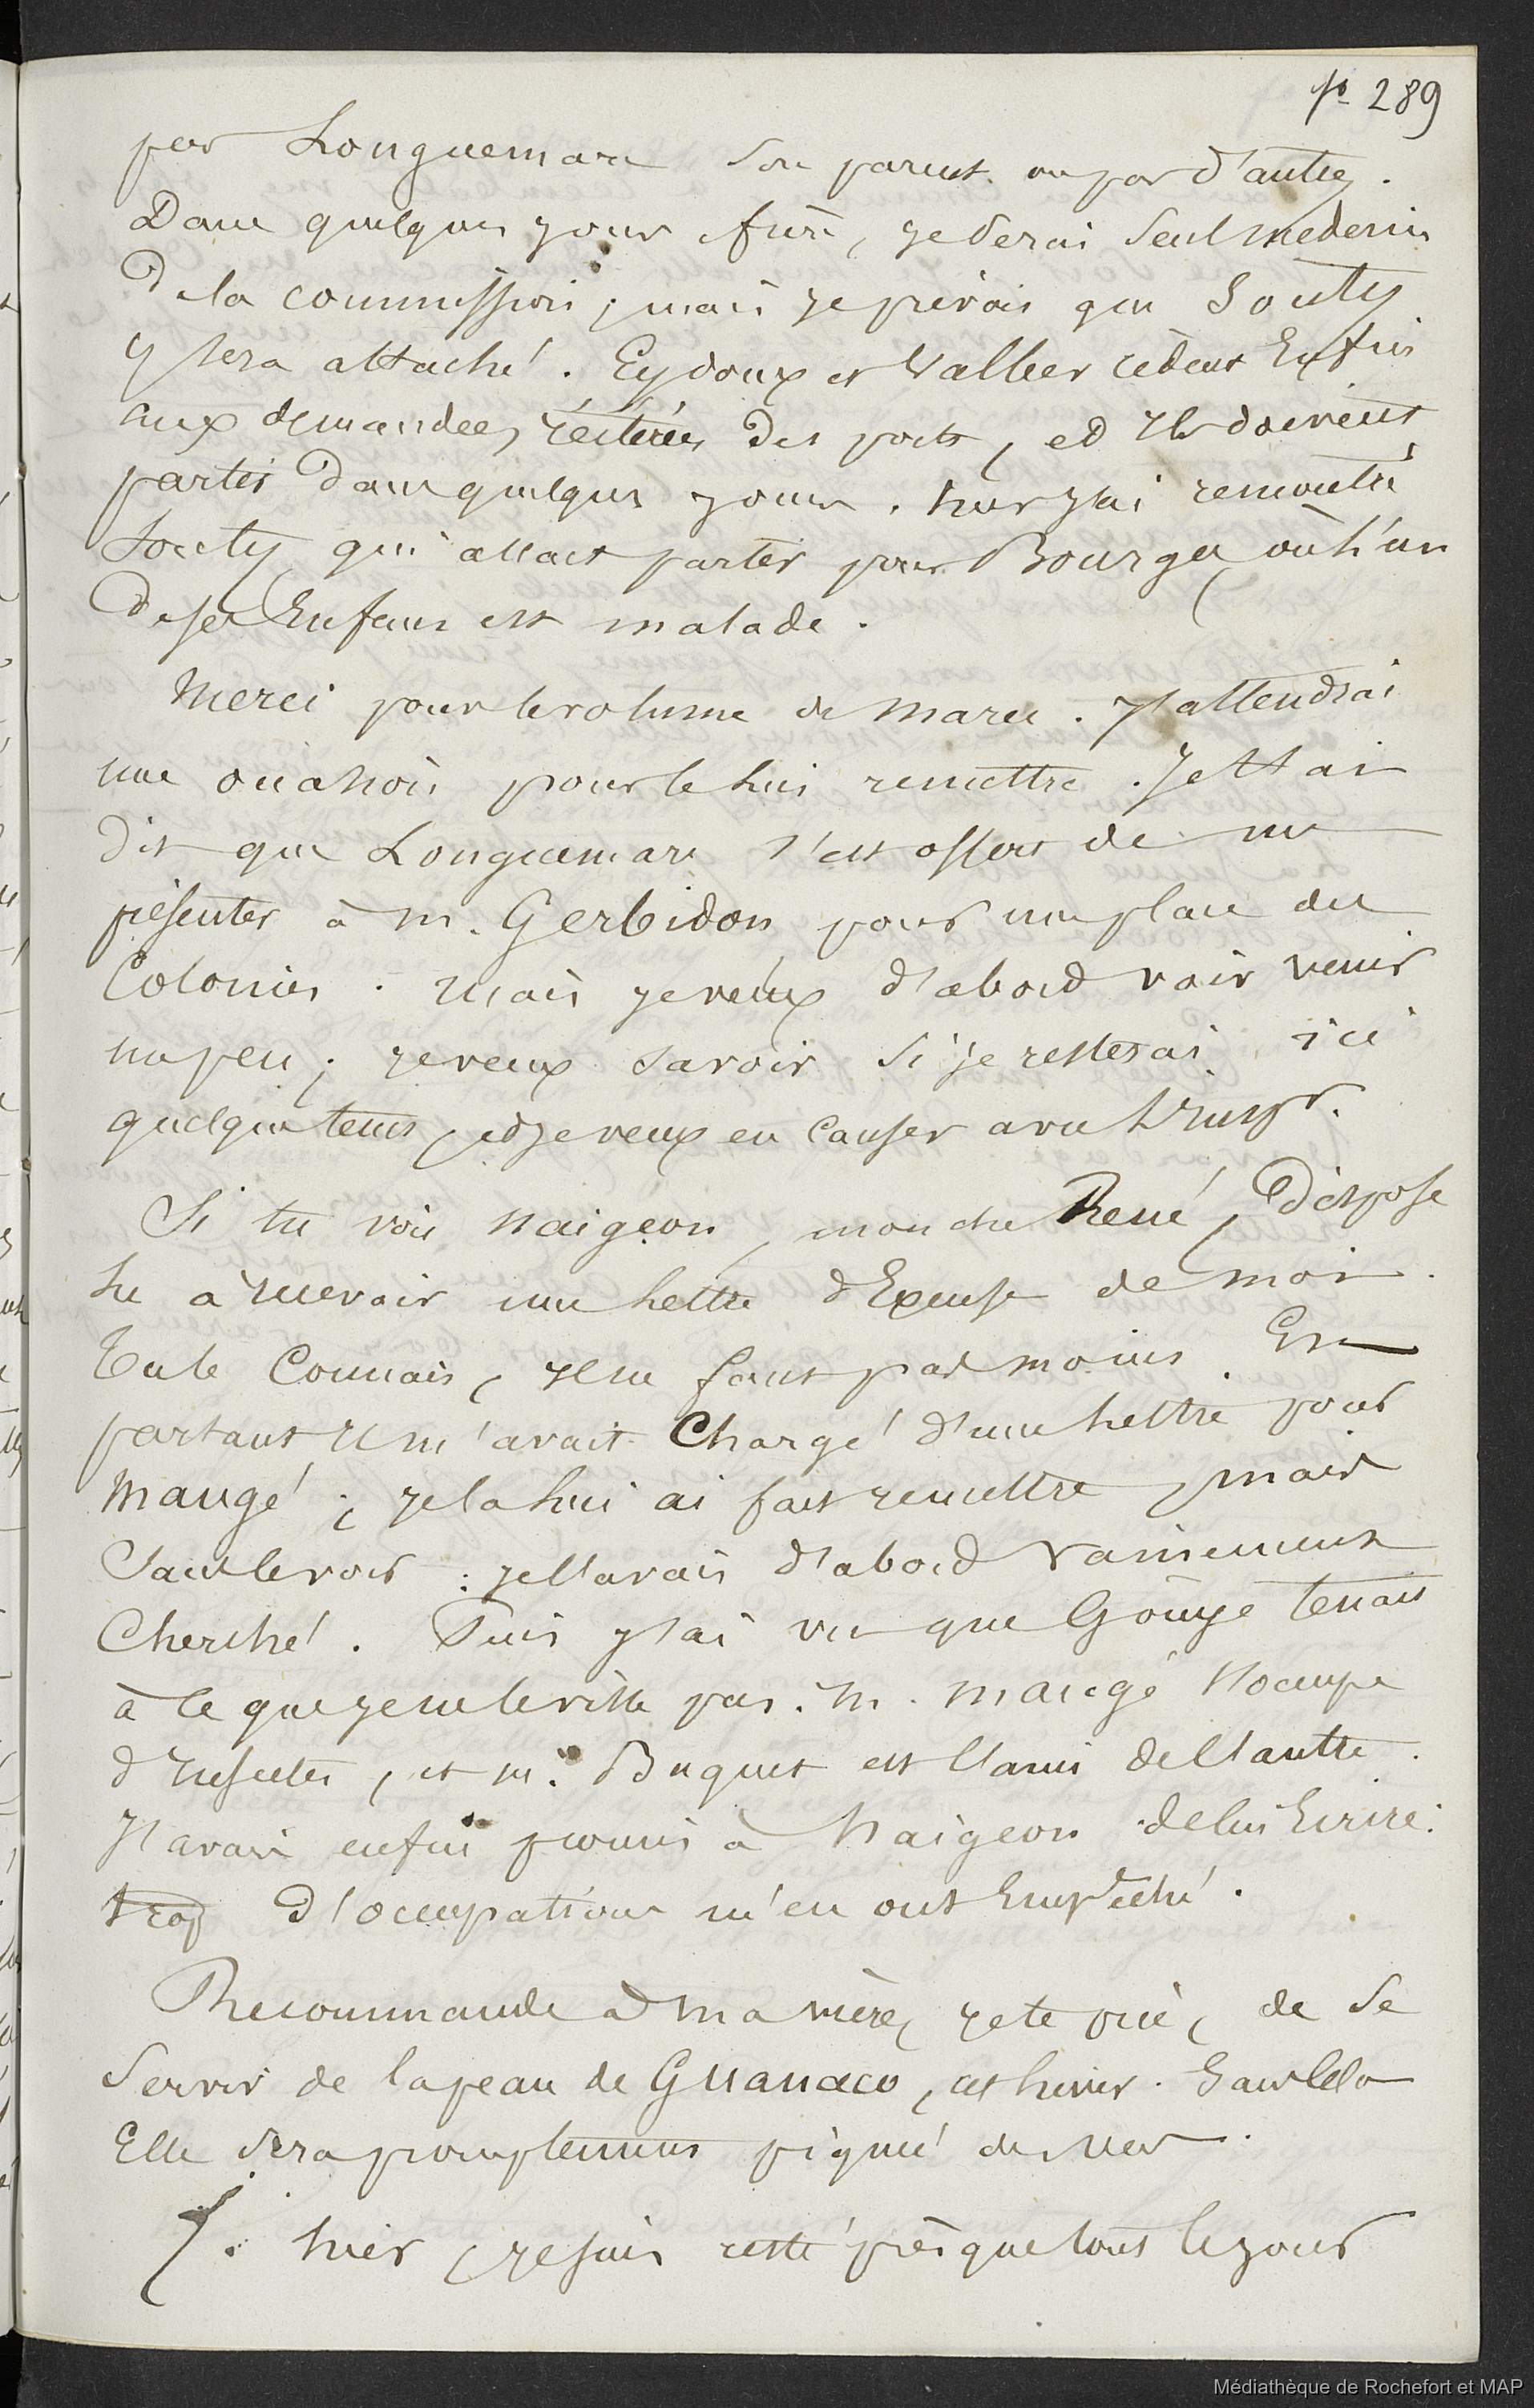 p. 289
par Longuemare son parent ou par d'autres.
Dans quelques jours ainsi, je serai seul médecin
de la commission ; mais je prévois que Souty
y sera attaché. Eydoux et Vallier cèdent Enfin
aux demandes réitérées des ports, et Ils doivent
partir dans quelques jours. hier j'ai rencontré
Souty qui allait partir pour Bourges où l'un
de ses Enfans est malade.
Merci pour le volume de Marec. J'attendrai
une occasion pour le lui remettre. Je t'ai
dit que Longuemare s'est offert de me
présenter à M. Gerbidon pour une place des
Colonies. Mais je veux d'abord voir venir
un peu ; je veux savoir si je resterai ici
quelque tems, et je veux en causer avec
Si tu vois Naigeon, mon cher René, Dispose
le à recevoir une lettre d'Excuse de moi.
Tu le Connais, Il ne faut pas moins. En
partant Il m'avait Chargé d'une lettre pour
Maugé ; je la lui ai fait remettre, mais
sans le voir : je l'avais d'abord vainement
Cherché. Puis j'ai vu que Gouÿe tenait
à ce que je ne le visse pas. M. Maugé s'occupe
d'Insectes, et M. Buquet est l'ami de l'autre.
J'avais enfin promis à Naigeon de lui Ecrire :
trop d'occupations m'en ont Empêché.
Recommande à Ma mère, je te prie, de se
Servir de la peau de Guanaco, cet hiver. Sans cela
Elle sera promptement piquée des vers.
J. hier, je suis resté presque tout le jour
Médiathèque de Rochefort et MAP